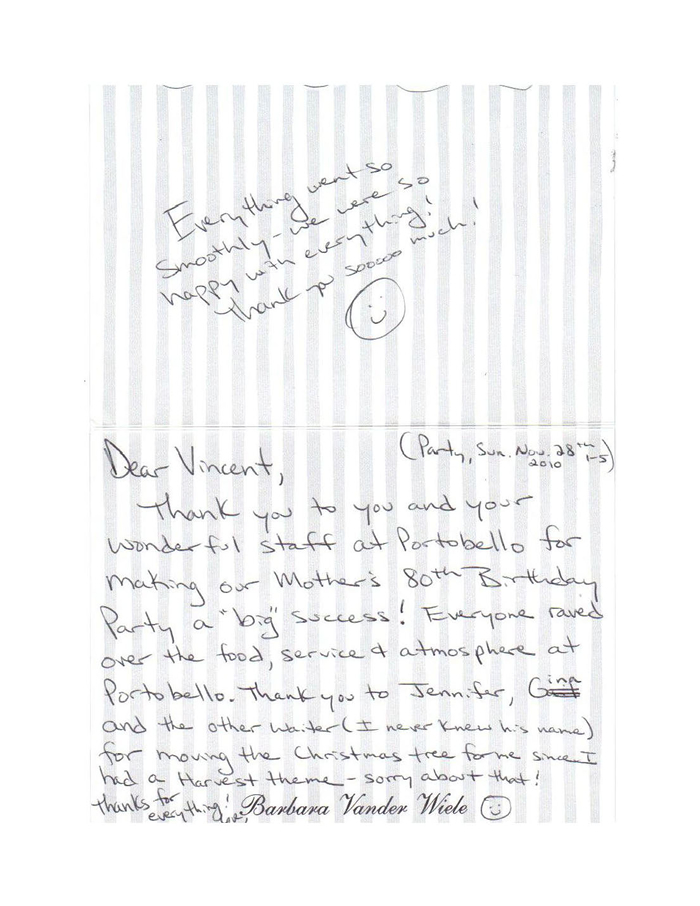 Everything went so
smoothly - we were so
happy with everything!
Thank you sooooo much!
(Party, Sun. Nov. 28th 1-5)
2010
Dear Vincent,
Thank you to you and your
wonderful staff at Portobello for
making our Mother's 80th Birthday
Party a "big" success! Everyone raved
over the food, service & atmosphere at
Portobello. Thank you to Jennifer,
and the other waiter (I never knew his name)
for moving the Christmas tree for me since I
had a Harvest theme - sorry about that!
Thanks for
everything!
Love,
Barbara Vander Wiele